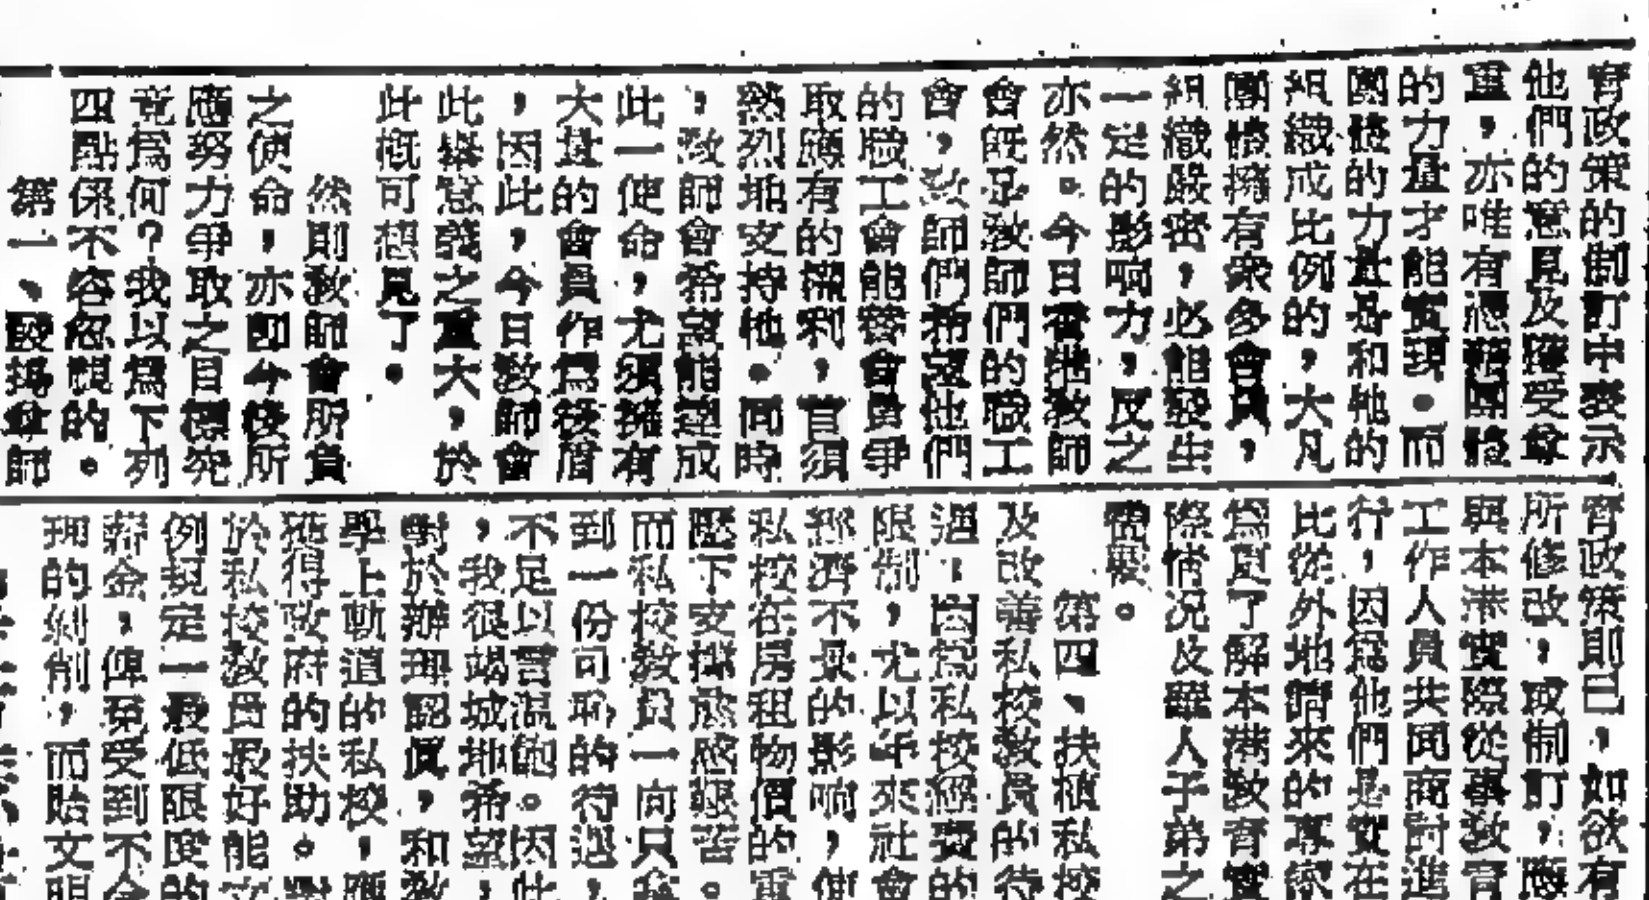 育政策的制訂中表示
他們的意見及獲受尊
重，亦唯有憑藉團體
的力量才能實現。而
團體的力量是和他的
組織成比例的，大凡
團體擁有衆多會員，
組織嚴密，必能發生
一定的影响力，反之
亦然。今日香港教師
會旣是教師們的職工
會，教師們希望他們
的職工會能替會員爭
取應有的權利，首須
熱烈地支持他。同時
，教師會希望能達成
此一使命，尤須擁有
大量的會員作爲後盾
，因此，今日教師會
此舉意義之重大，於
此槪可想見了。
然則教師會所負
之使命，亦卽今後所
應努力爭取之目標究
竟爲何？我以爲下列
四點係不容忽視的。
第一、
師
育政策則已，如欲有
所修改，取制訂，應
與本港實際從事教育
工作人員共同商討進
行，因爲他們是實在
比從外地請來的專家
爲更了解本港教育實
際情况及羅人子弟之
需要。
第四、扶植私校
及改善私校教員的待
遇：因爲私校經費的
限制，尤以年來社會
經濟不景的影响，使
私校在房租物價的重
壓下支撑愈感艱苦。
而私校教員一向只拿
到一份可恥的待遇，
不足以言溫飽。因此
，我很竭誠地希望，
對於辦理認眞，和教
學上軌道的私校，應
獲得政府的扶助。對
於私校教員最好能立
例規定一最低限度的
薪金，俾免受到不合
理的剝削，而貽文明